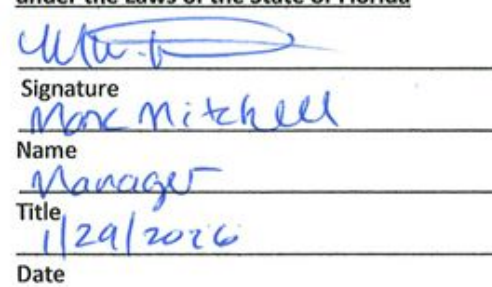 under the Laws of the State of Florida
Signature
Marc Mitchell
Name
Manager
Title
1/29/2026
Date